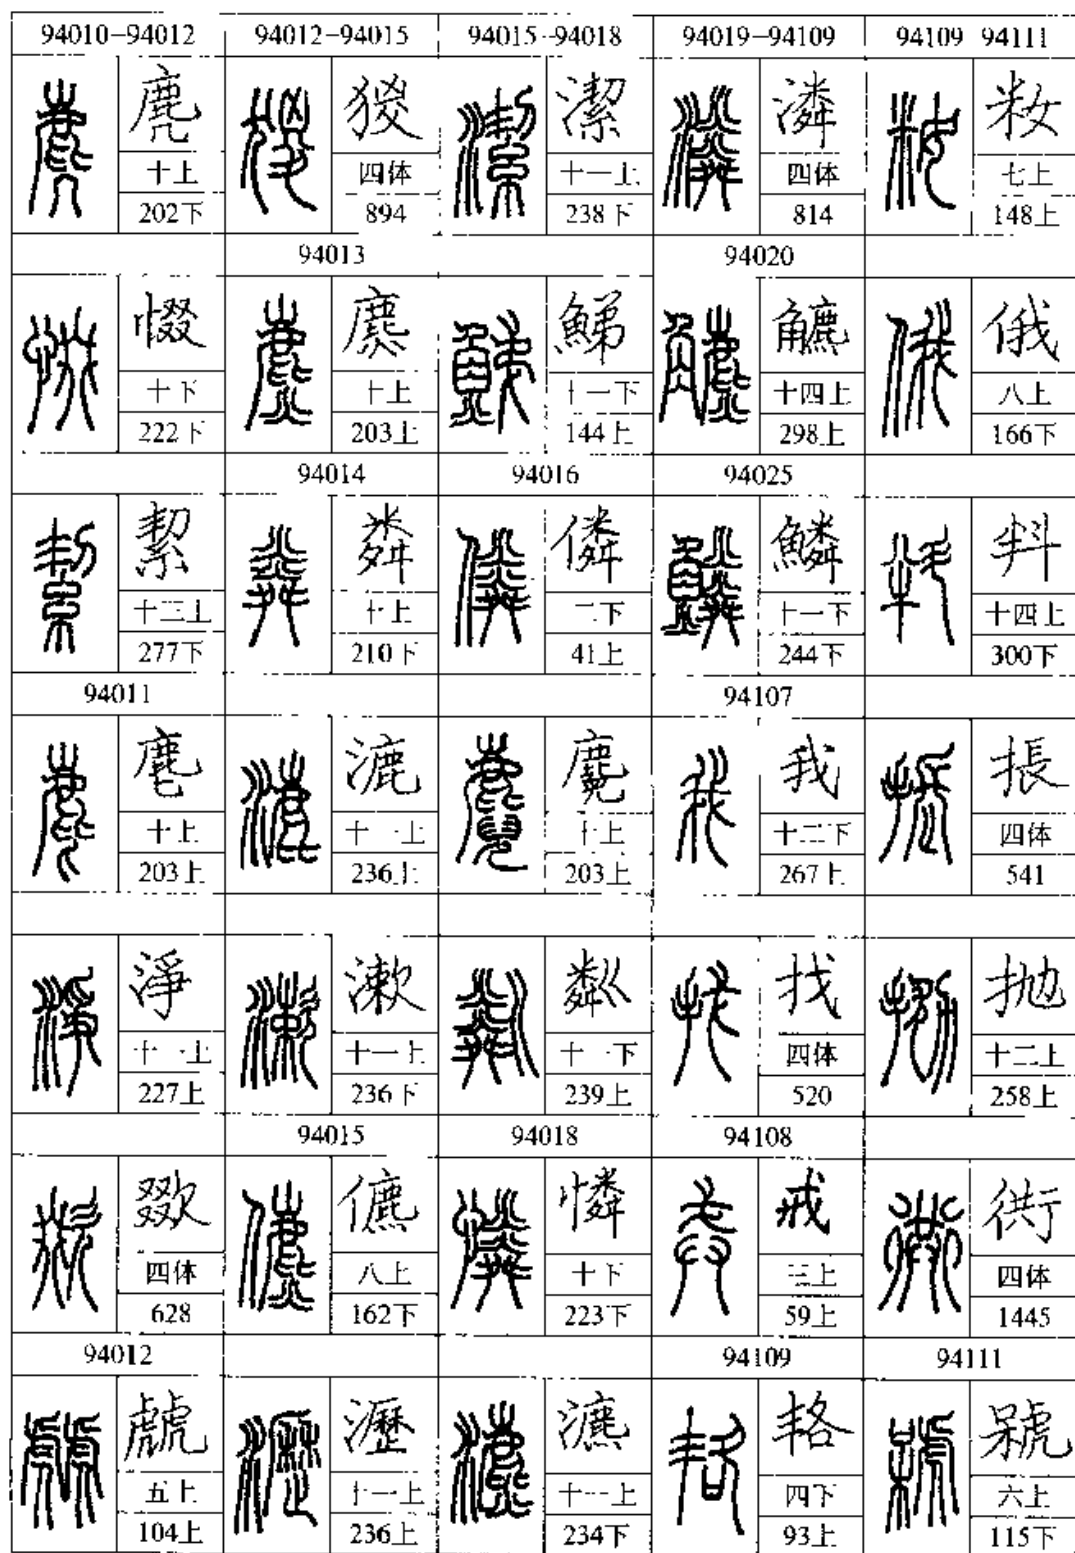 94010-94012
麂
十上
202下
惙
十下
222下
絜
十三上
277下
94011
麀
十上
203上
淨
十一上
227上
四体
628
94012
虤
五上
104上
94012-94015
猣
四体
894
94013
麃
十上
203上
94014
粦
十上
210下
漉
十一上
236上
漱
十一上
236下
94015
儦
八上
162下
瀝
十一上
236上
94015-94018
潔
十一上
238下
鮷
十一下
144上
94016
僯
二下
41上
麑
十上
203上
粼
十一下
239上
94018
憐
十下
223下
瀌
十一上
234下
94019-94109
潾
四体
814
94020
十四上
298上
94025
鱗
十一下
244下
94107
我
十二下
267上
找
四体
520
94108
戒
三上
59上
94109
四下
93上
94109 94111
籹
七上
148上
俄
八上
166下
㪵
十四上
300下
四体
541
抛
十二上
258上
衖
四体
1445
94111
六上
115下